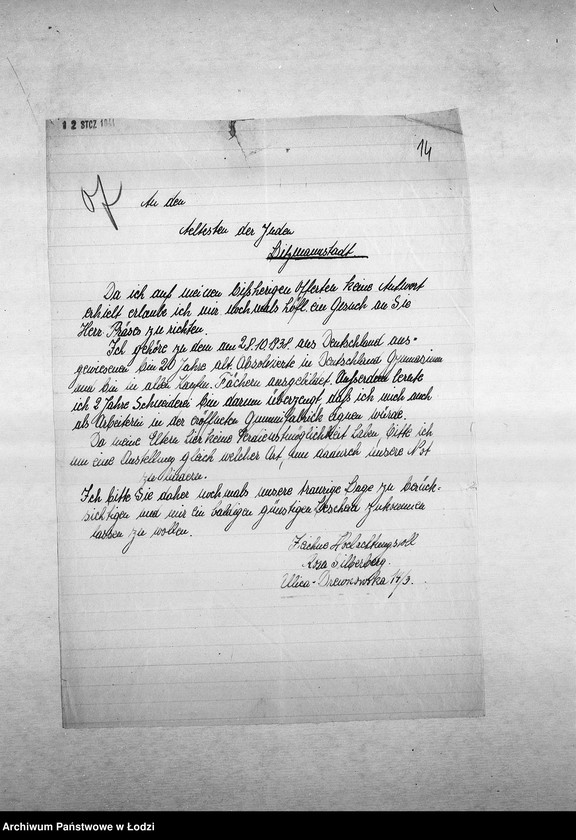 12 STCZ 1941
14
An den
Aeltesten der Juden
Litzmannstadt
Da ich auf meinen bisherigen Offerten keine Antwort
erhielt erlaube ich mir nochmals höfl. ein Gesuch an Sie
Herr Präses zu richten.
Ich gehöre zu dem am 28.10.1938 aus Deutschland aus-
gewiesenen bin 20 Jahre alt. Absolvierte in Deutschland Gymnasium
und bin in allen kaufm. Fächern ausgebildet. Außerdem lernte
ich 2 Jahre Schneiderei bin darum überzeugt, daß ich mich auch
als Arbeiterin in der eröffneten Gummifabrick eignen würde.
Da meine Eltern hier keine Verdienstmöglichkeit haben bitte ich
um eine Anstellung gleich welcher Art, um unsere Not
zu lindern.
Ich bitte Sie daher nochmals unsere traurige Lage zu berück-
sichtigen und mir ein baldigen günstigen Bescheid zukommen
lassen zu wollen.
Zeichne Hochachtungsvoll
Rosa Silberberg.
Ulica-Drewnowska 17/3.
Archiwum Państwowe w Łodzi